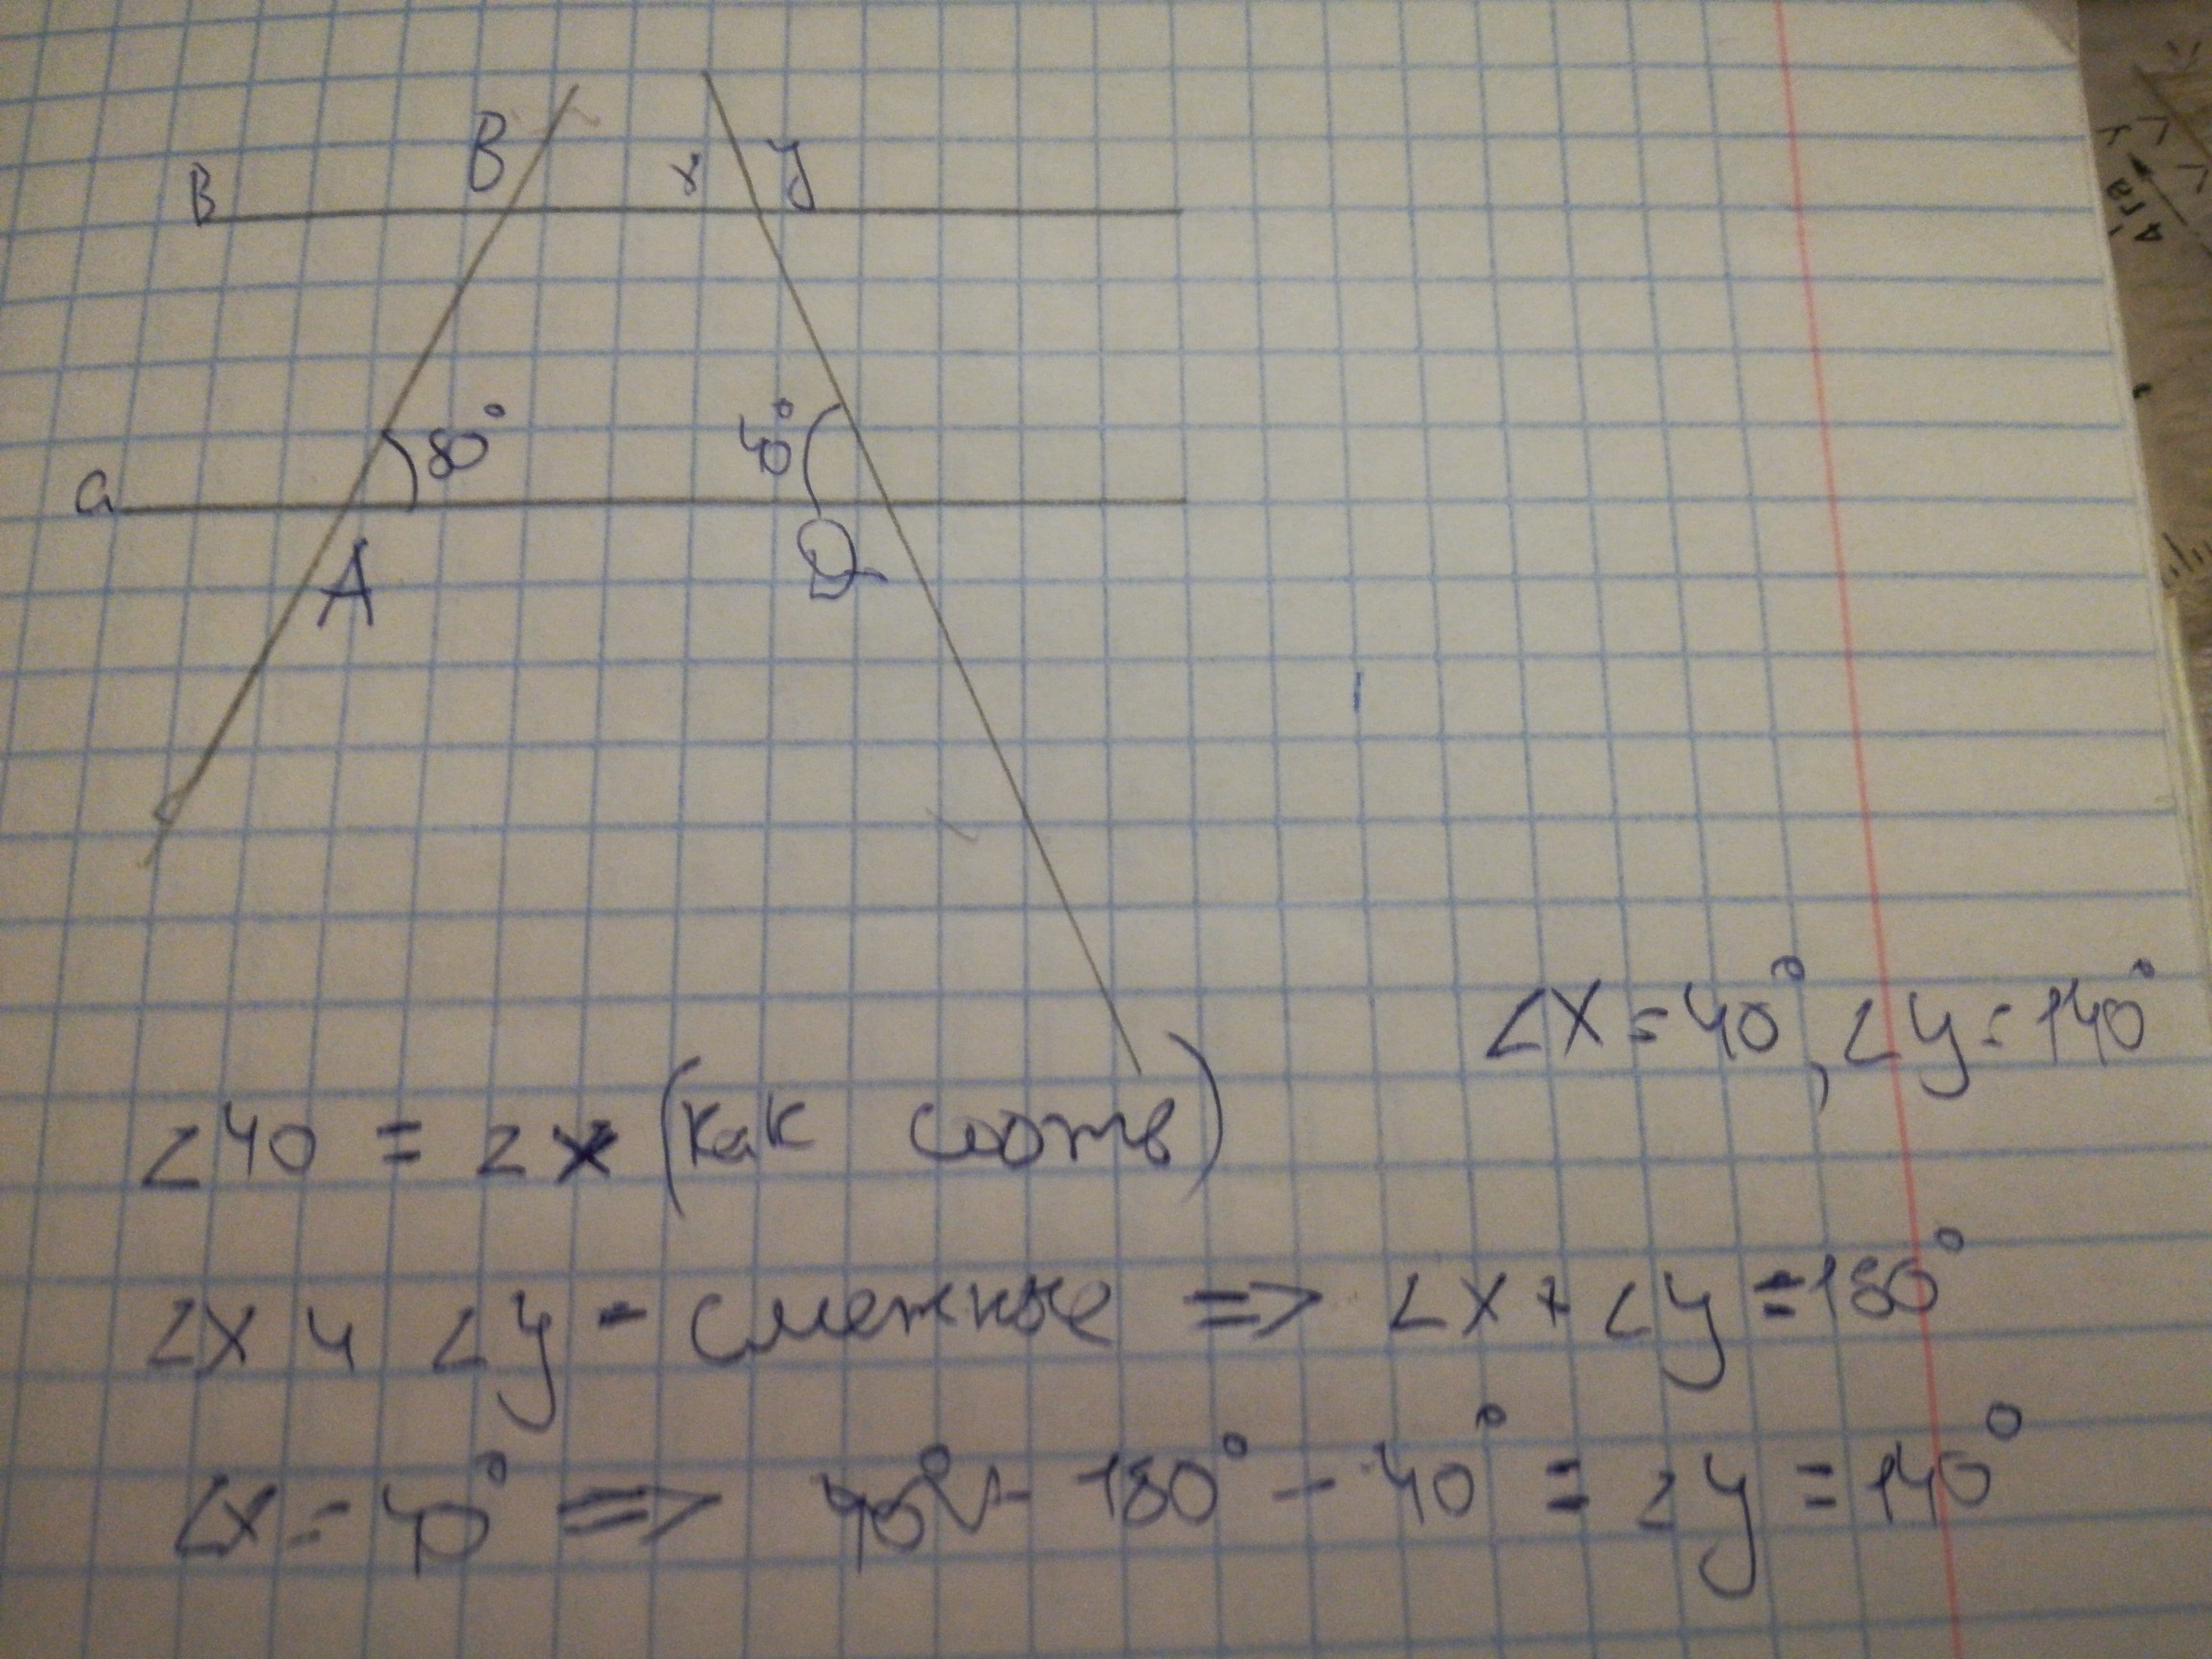 В В х у
80° 40°
a
А D
∠X = 40°, ∠y = 140°
∠40 = ∠x (как соотв)
∠X и ∠y - смежные => ∠X + ∠y = 180°
∠X = 40° => 180° - 40° = ∠y = 140°